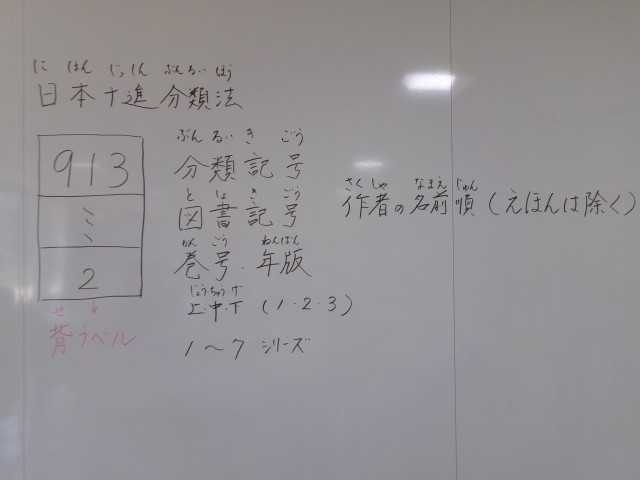 に ほん じっしん ぶんるい ほう
日本十進分類法
ぶん るい き ごう
913 分類記号
と しょ き ごう
ミ 図書記号
さく しゃ なまえ じゅん
作者の名前順(えほんは除く)
かん ごう ねんばん
2 巻号・年版
じょう・ちゅう・げ
上・中・下 (1・2・3)
せ
背ラベル
1〜7 シリーズ